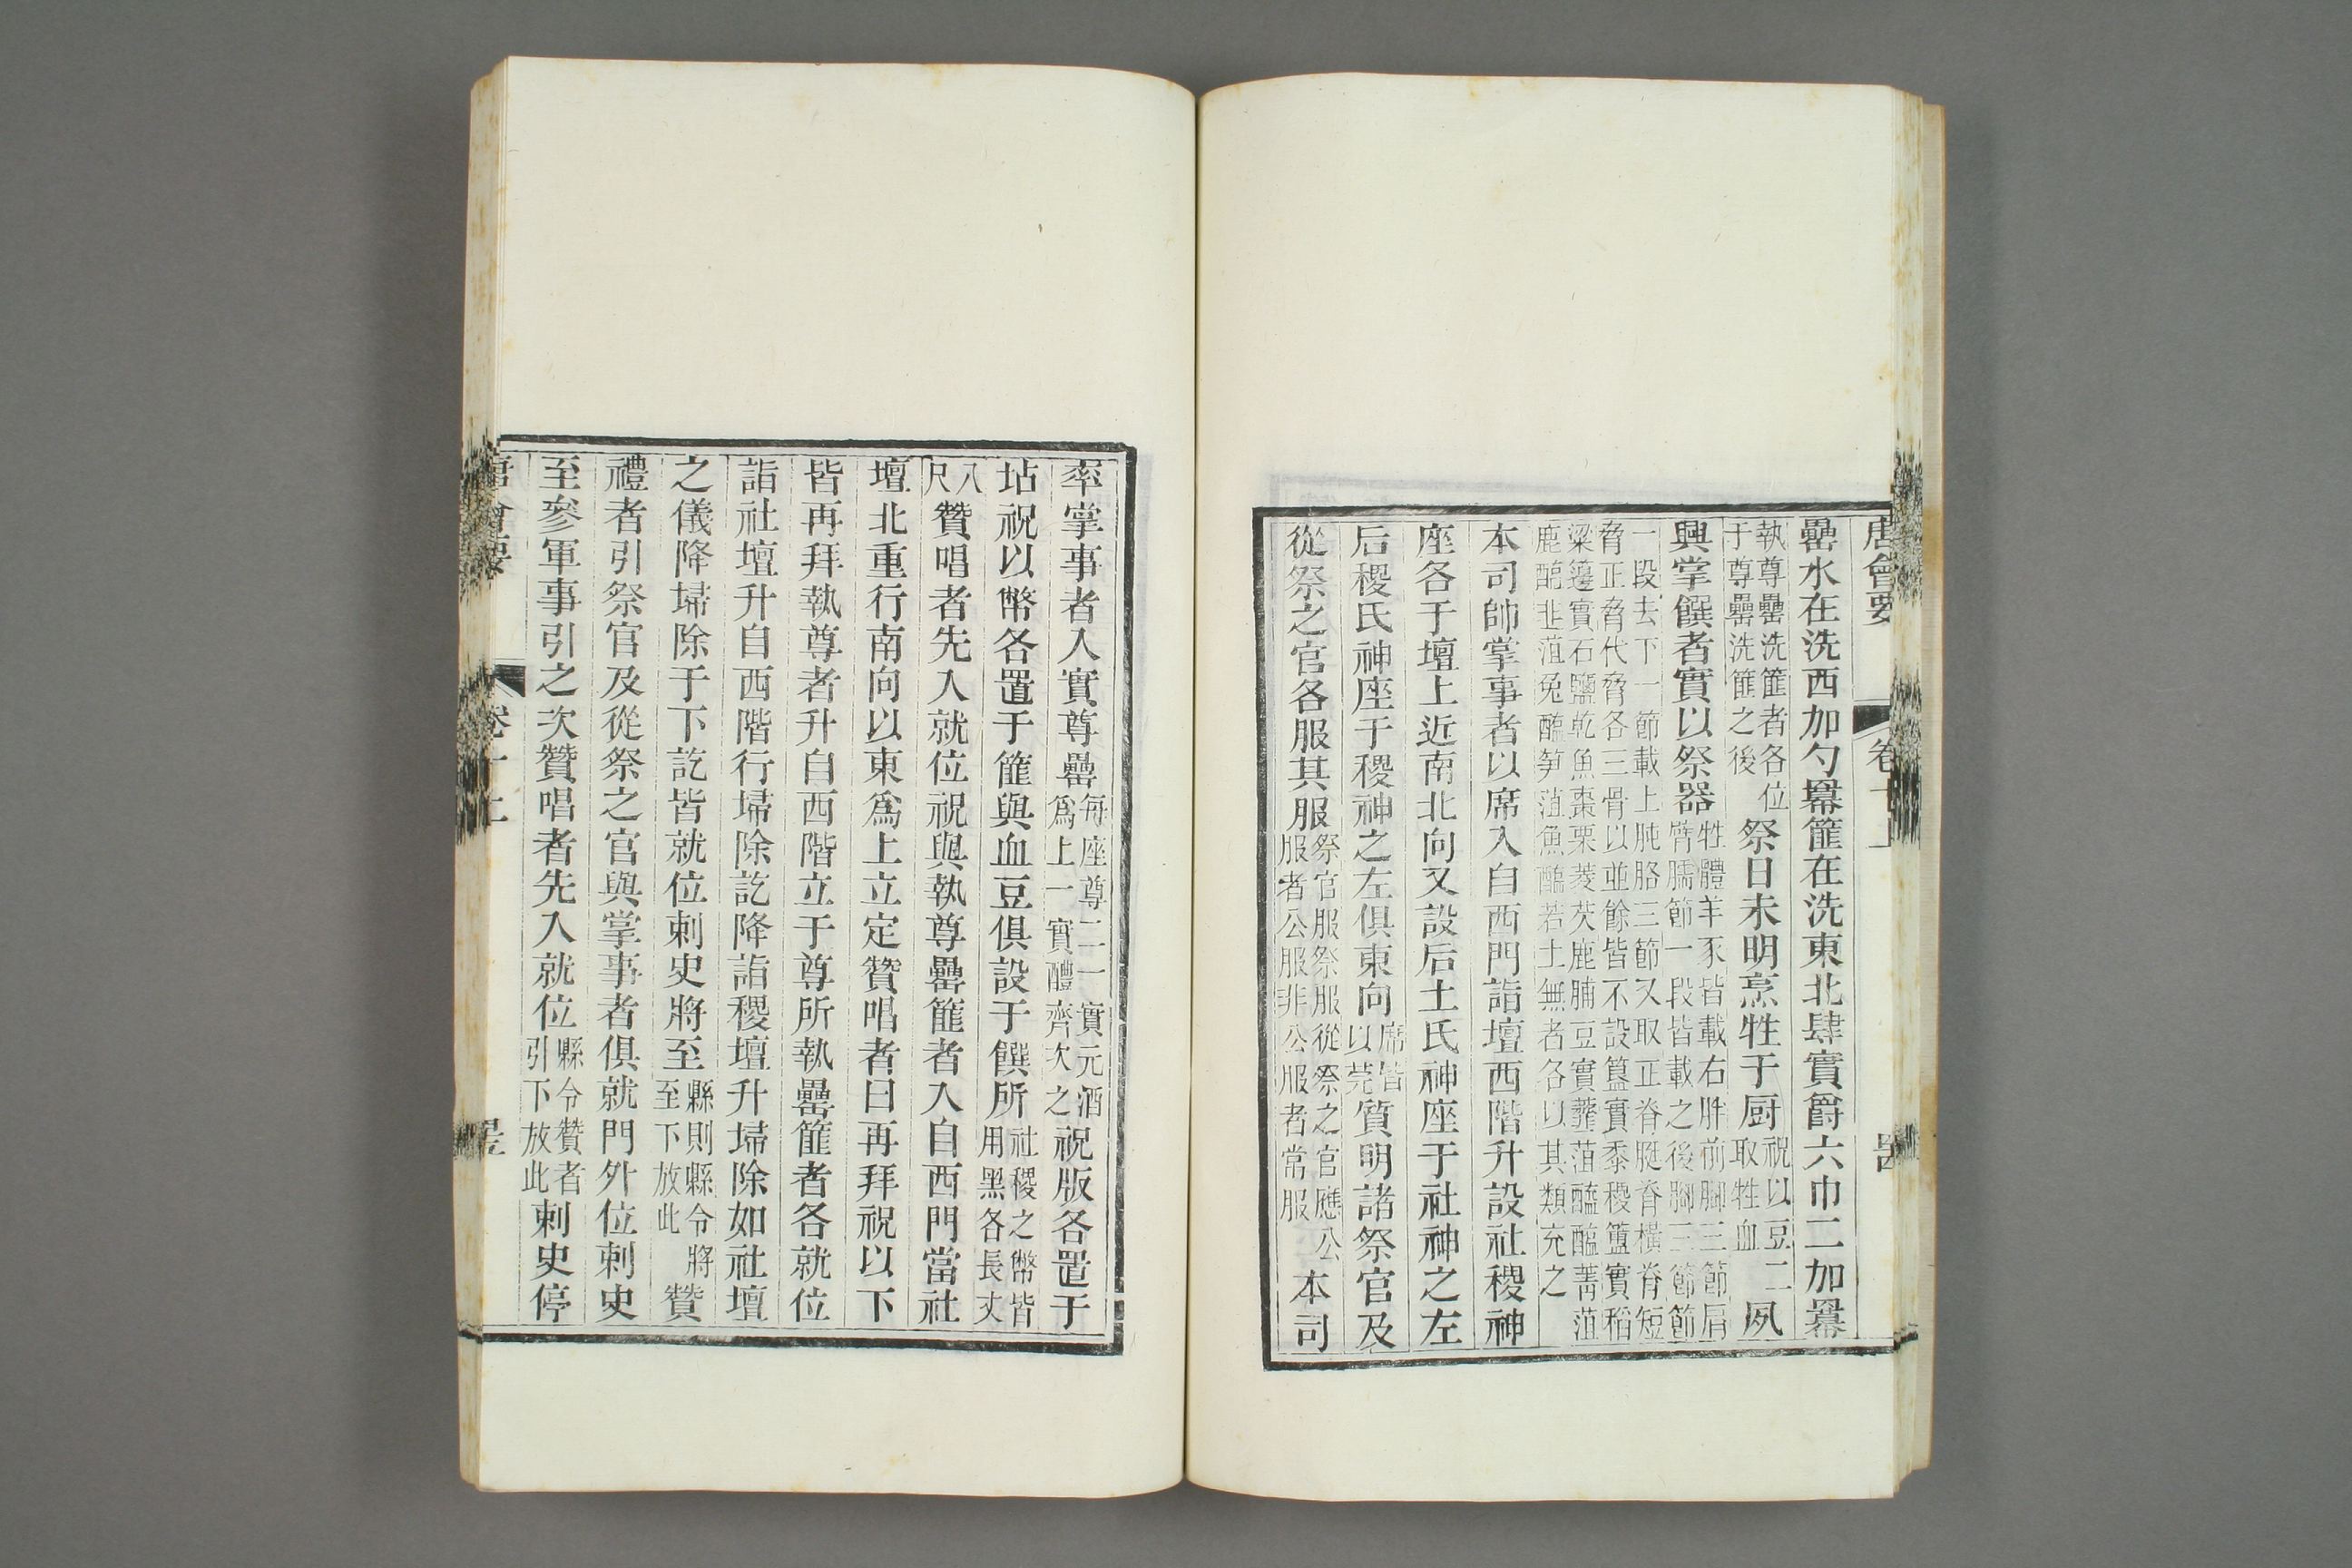 唐會要
罍水在洗西加勺冪篚在洗東北肆實爵六巾二加冪
執尊罍洗篚者各位于尊罍洗篚之後祭日未明烹牲于厨祝以豆二取牲血夙
興掌饌者實以祭器牲體羊豕皆載右胖前脚三節肩臂臑節一段皆載之後脚三節節
一段去下一節載上肫胳三節又取正脊脡脊橫脊短
脅正脅代脅各三骨以並餘皆不設簋實黍稷簠實稻
梁籩實石鹽乾魚棗栗菱芡鹿脯豆實韲菹醓醢菁菹
鹿醢韭菹兔醢筍菹魚醢若土無者各以其類充之
本司帥掌事者以席入自西門詣壇西階升設社稷神
座各于壇上近南北向又設后土氏神座于社神之左
后稷氏神座于稷神之左俱東向席皆以莞質明諸祭官及
從祭之官各服其服祭官服祭服從祭之官應公服者公服非公服者常服本司
率掌事者入實尊罍每座尊二一實元酒爲上一實醴齊次之祝版各置于
坫祝以幣各置于篚與血豆俱設于饌所社稷之幣皆用黑各長丈
八尺贊唱者先入就位祝與執尊罍篚者入自西門當社
壇北重行南向以東爲上立定贊唱者曰再拜祝以下
皆再拜執尊者升自西階立于尊所執罍篚者各就位
詣社壇升自西階行埽除訖降詣稷壇升埽除如社壇
之儀降埽除于下訖皆就位刺史將至縣則縣令將至下放此贊
禮者引祭官及從祭之官與掌事者俱就門外位刺史
至參軍事引之次贊唱者先入就位縣令贊者引下放此刺史停
唐會要 卷十上